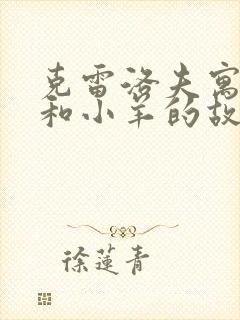 克雷洛夫寓
和小羊的故
徐莲青